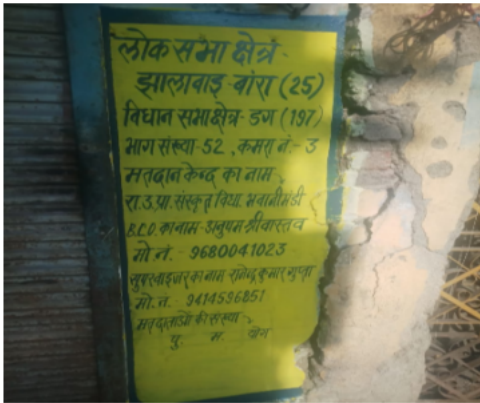 लोक सभा क्षेत्र-
झालावाड़-बांरा (25)
विधान सभा क्षेत्र- डग (197)
भाग संख्या-52, कमरा नं.- 3
मतदान केन्द्र का नाम
रा.उ.प्रा. संस्कृत विद्या. भवानीमंडी
B.L.O. का नाम- अनुपम श्रीवास्तव
मो.नं. - 9680041023
सुपरवाइजर का नाम कुमार गुप्ता
मो.नं. - 9414596851
मतदाताओं की संख्या-
पु. म. योग